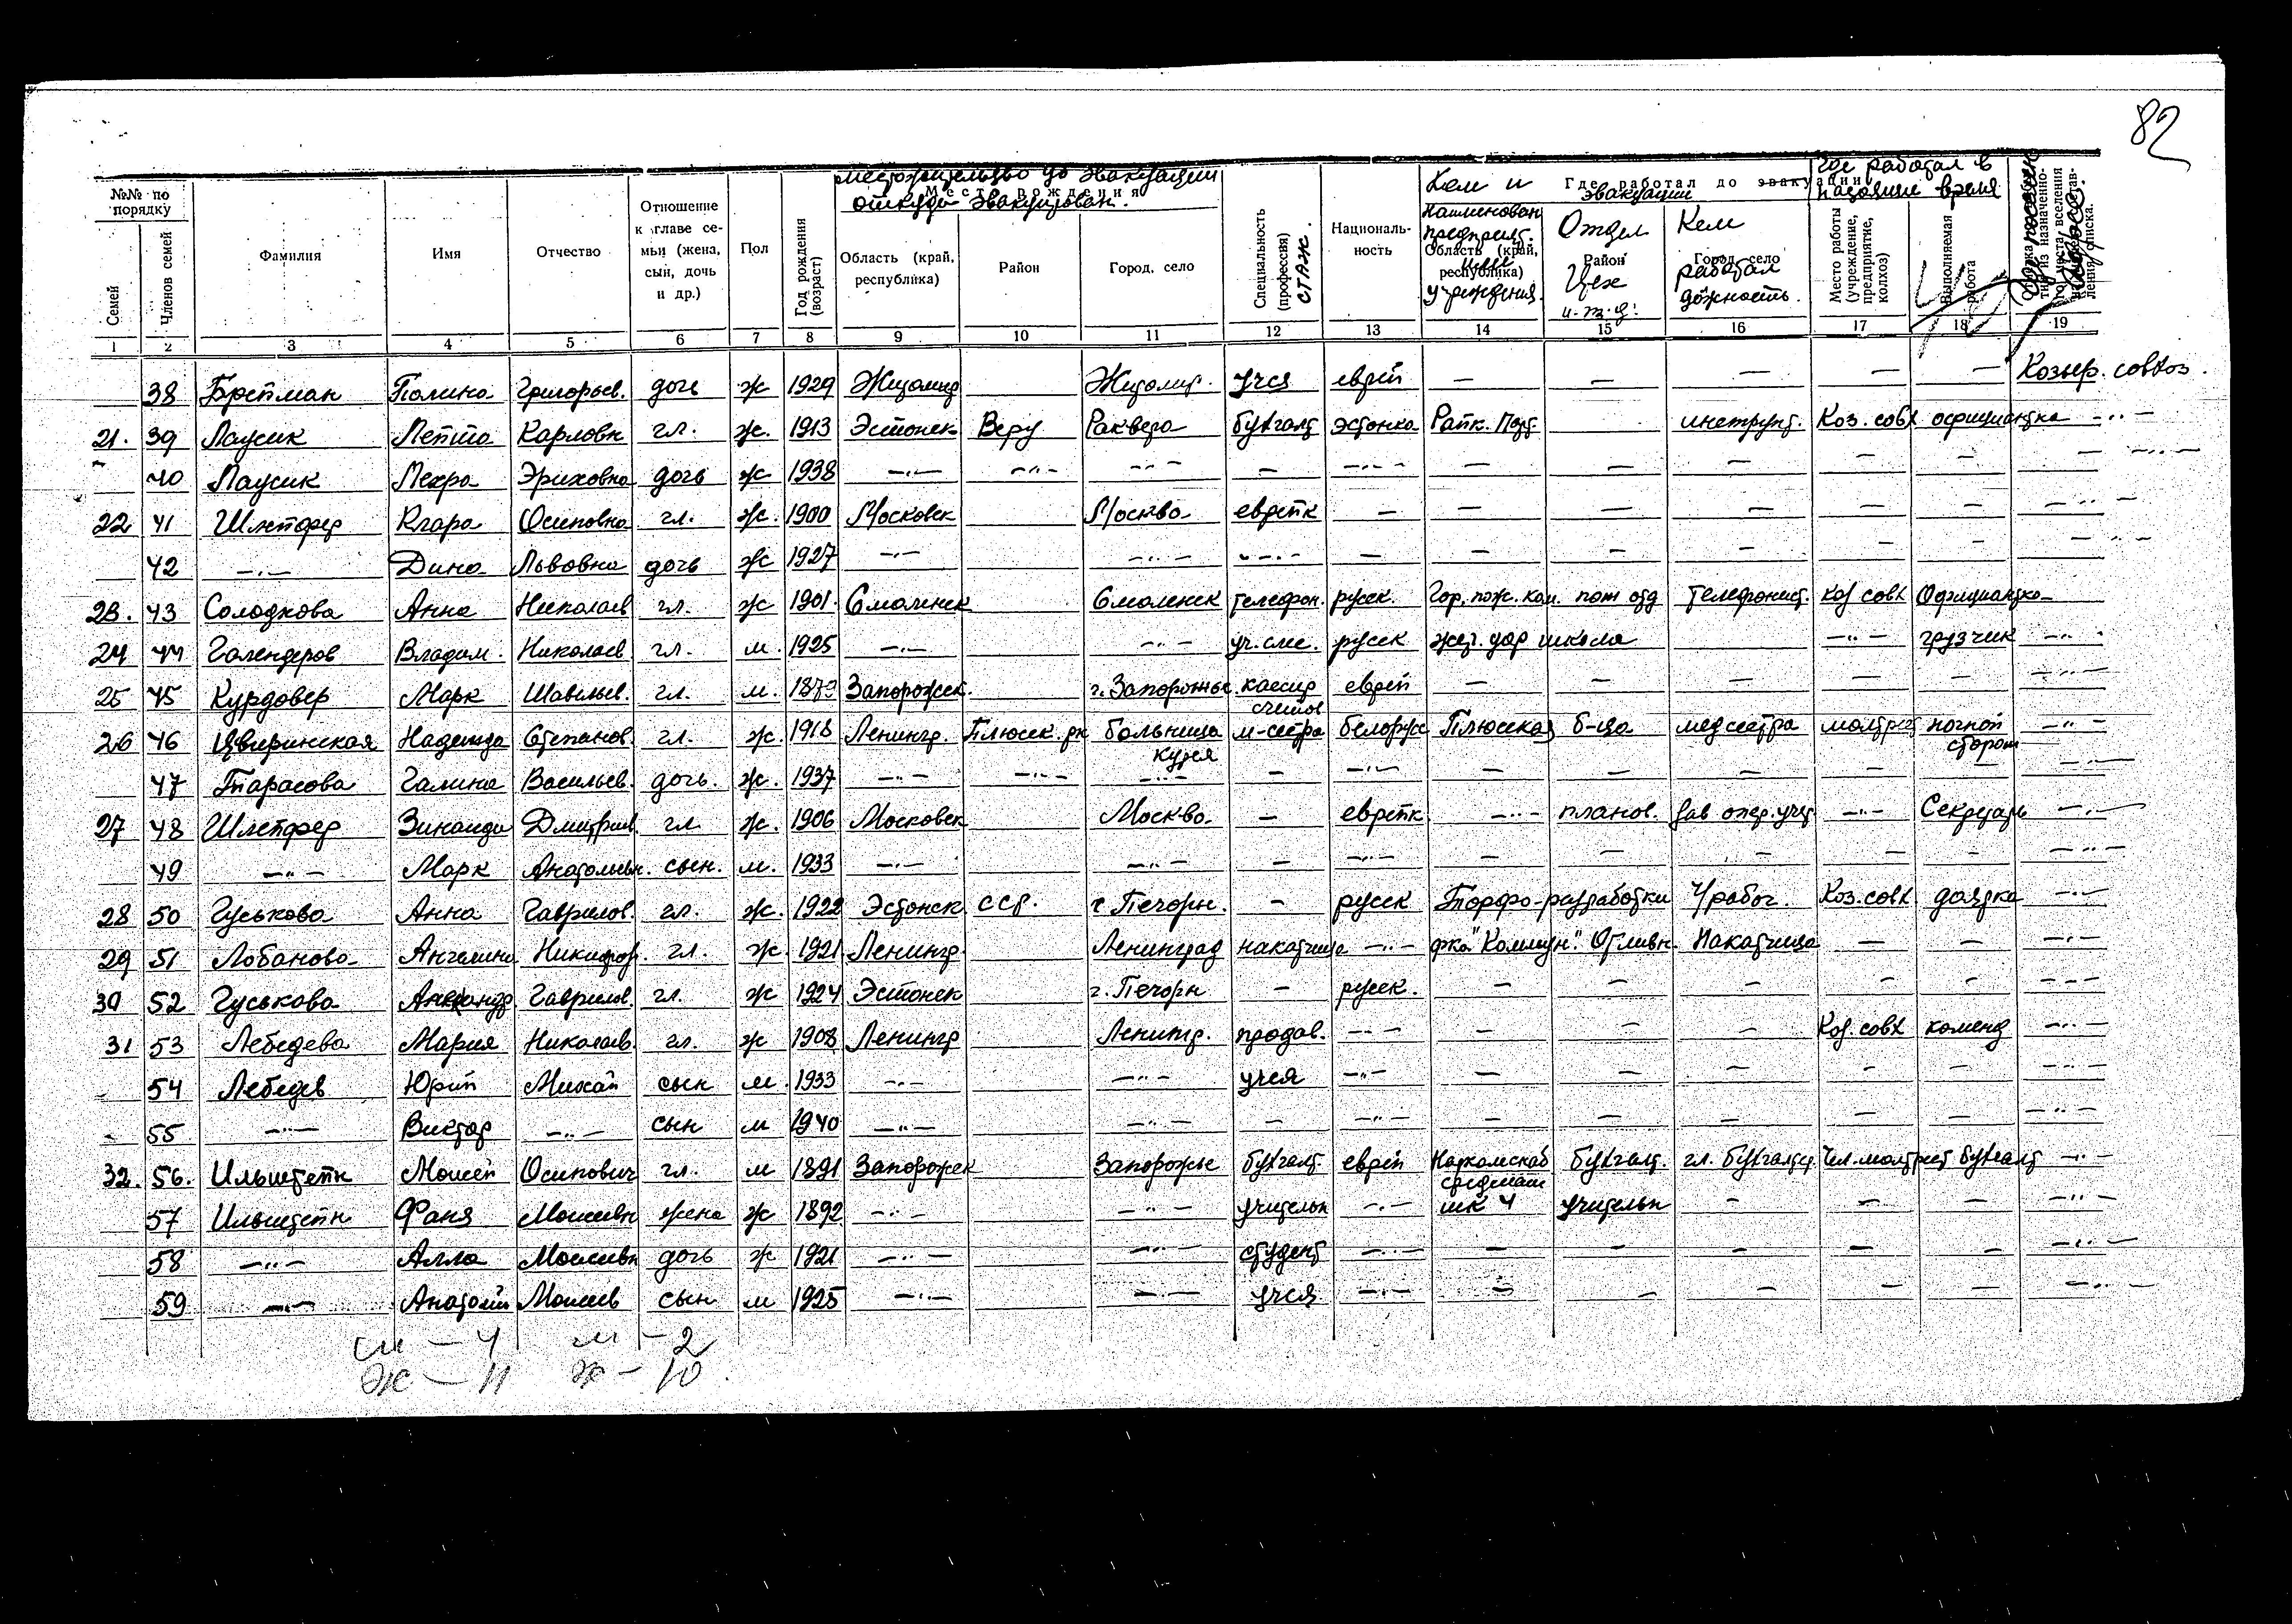 82
№№ по порядку Фамилия Имя Отчество Отношение к главе семьи (жена, сын, дочь и др.) Пол Год рождения (возраст) Место рождения Специальность (профессия) Националь-ность Где работал до эвакуации
местожительство до эвакуации
откуда эвакуирован.
Кем и эвакуации
Где работал в настоящее время
Семей Членов семей Область (край, республика) Район Город, село стаж. Область (край, республика) Район Город, село Место работы (учреждение, предприятие, колхоз) Выполняемая работа
наименован предприят. или учреждения. Отдел Цех и.т.д. Кем работал должность.
1 2 3 4 5 6 7 8 9 10 11 12 13 14 15 16 17 18 19
38 Брейтман Полина Григорьев. дочь ж 1929 Житомир Житомир. учся еврей — — — — — Козыр. совхоз.
21. 39 Лаусик Лейта Карловн гл. ж. 1913 Эстонск Веру Раквера бухгалт эстонка Райк. Парт. инструкт. Коз. совх официантка —"—
40 Лаусик Мехра Эриховна дочь ж 1938 —"— —"— —"— — —"— — — — — — — —"—
22 41 Шлейфер Клара Осиповна гл. ж. 1900 Московск Москва еврейк — — — — — — —"—
42 —"— Дина Львовна дочь ж 1927 —"— —"— —"— — — — — — — —"—
23. 43 Солодкова Анна Николаев гл. ж 1901 Смоленск Смоленск телефон. русск. Гор. пож. ком. пож отд телефонист. коз совх Официантка
24 44 Галендеров Владим. Николаев. гл. м. 1925 —"— —"— уч. слес. русск жел. дор школа —"— грузчик —"—
25 45 Курдовер Марк Шавельев. гл. м. 1879 Запорожск. г. Запорожье кассир счетов еврей — — — — — —"—
26 46 Цверинская Надежда Степанов. гл. ж. 1918 Ленингр. Плюсск. рн больница м-сестра белорус Плюсская б-ца медсестра ночной сторож —"—
47 Тарасова Галина Васильев. дочь. ж. 1937 —"— —"— —"— — —"— — — — — — —"—
27 48 Шлейфер Зинаида Дмитриев. гл. ж. 1906 Московск Москва — еврейк —"— планов. зав опер. учет —"— Секретарь —"—
49 —"— Марк Анатольевич. сын. м. 1933 —"— —"— — —"— — — — — — —"—
28 50 Гуськова Анна Гаврилов. гл. ж. 1922 Эстонск ССР. г. Печоры. — русск Торфо-разработки Ч/рабоч. Коз. совх доярка —"—
29 51 Лобанова Ангелина Никифор. гл. ж. 1921 Ленингр. Ленинград накатчица —"— фка "Коммун." Отливн. Накатчица — — —"—
30 52 Гуськова Александр Гаврилов. гл. ж 1924 Эстонск г. Печоры — русск. — — — — — —"—
31 53 Лебедева Мария Николаев. гл. ж 1908 Ленингр Ленингр. продав. —"— — — — Коз. совх коменд —"—
54 Лебедев Юрий Михай сын м. 1933 —"— —"— учся —"— — — — — — —"—
55 —"— Виктор —"— сын м 1940 —"— —"— — —"— — — — — — —"—
32. 56. Ильштейн Моисей Осипович гл. м 1891 Запорожск Запорожье бухгалт. еврей Наркомснаб бухгалт. гл. бухгалтер. бухгалт —"—
57 Ильштейн Фаня Моисеевн жена ж 1892 —"— —"— учительн —"— шк 4 учительн — — — —"—
58 —"— Алла Моисеевн дочь ж 1921 —"— —"— студент —"— — — — — — —"—
59 —"— Анатолий Моисеев сын м 1925 —"— —"— учся —"— — — — — — —"—
м — 4 м — 2
Ж — 11 ж — 10.